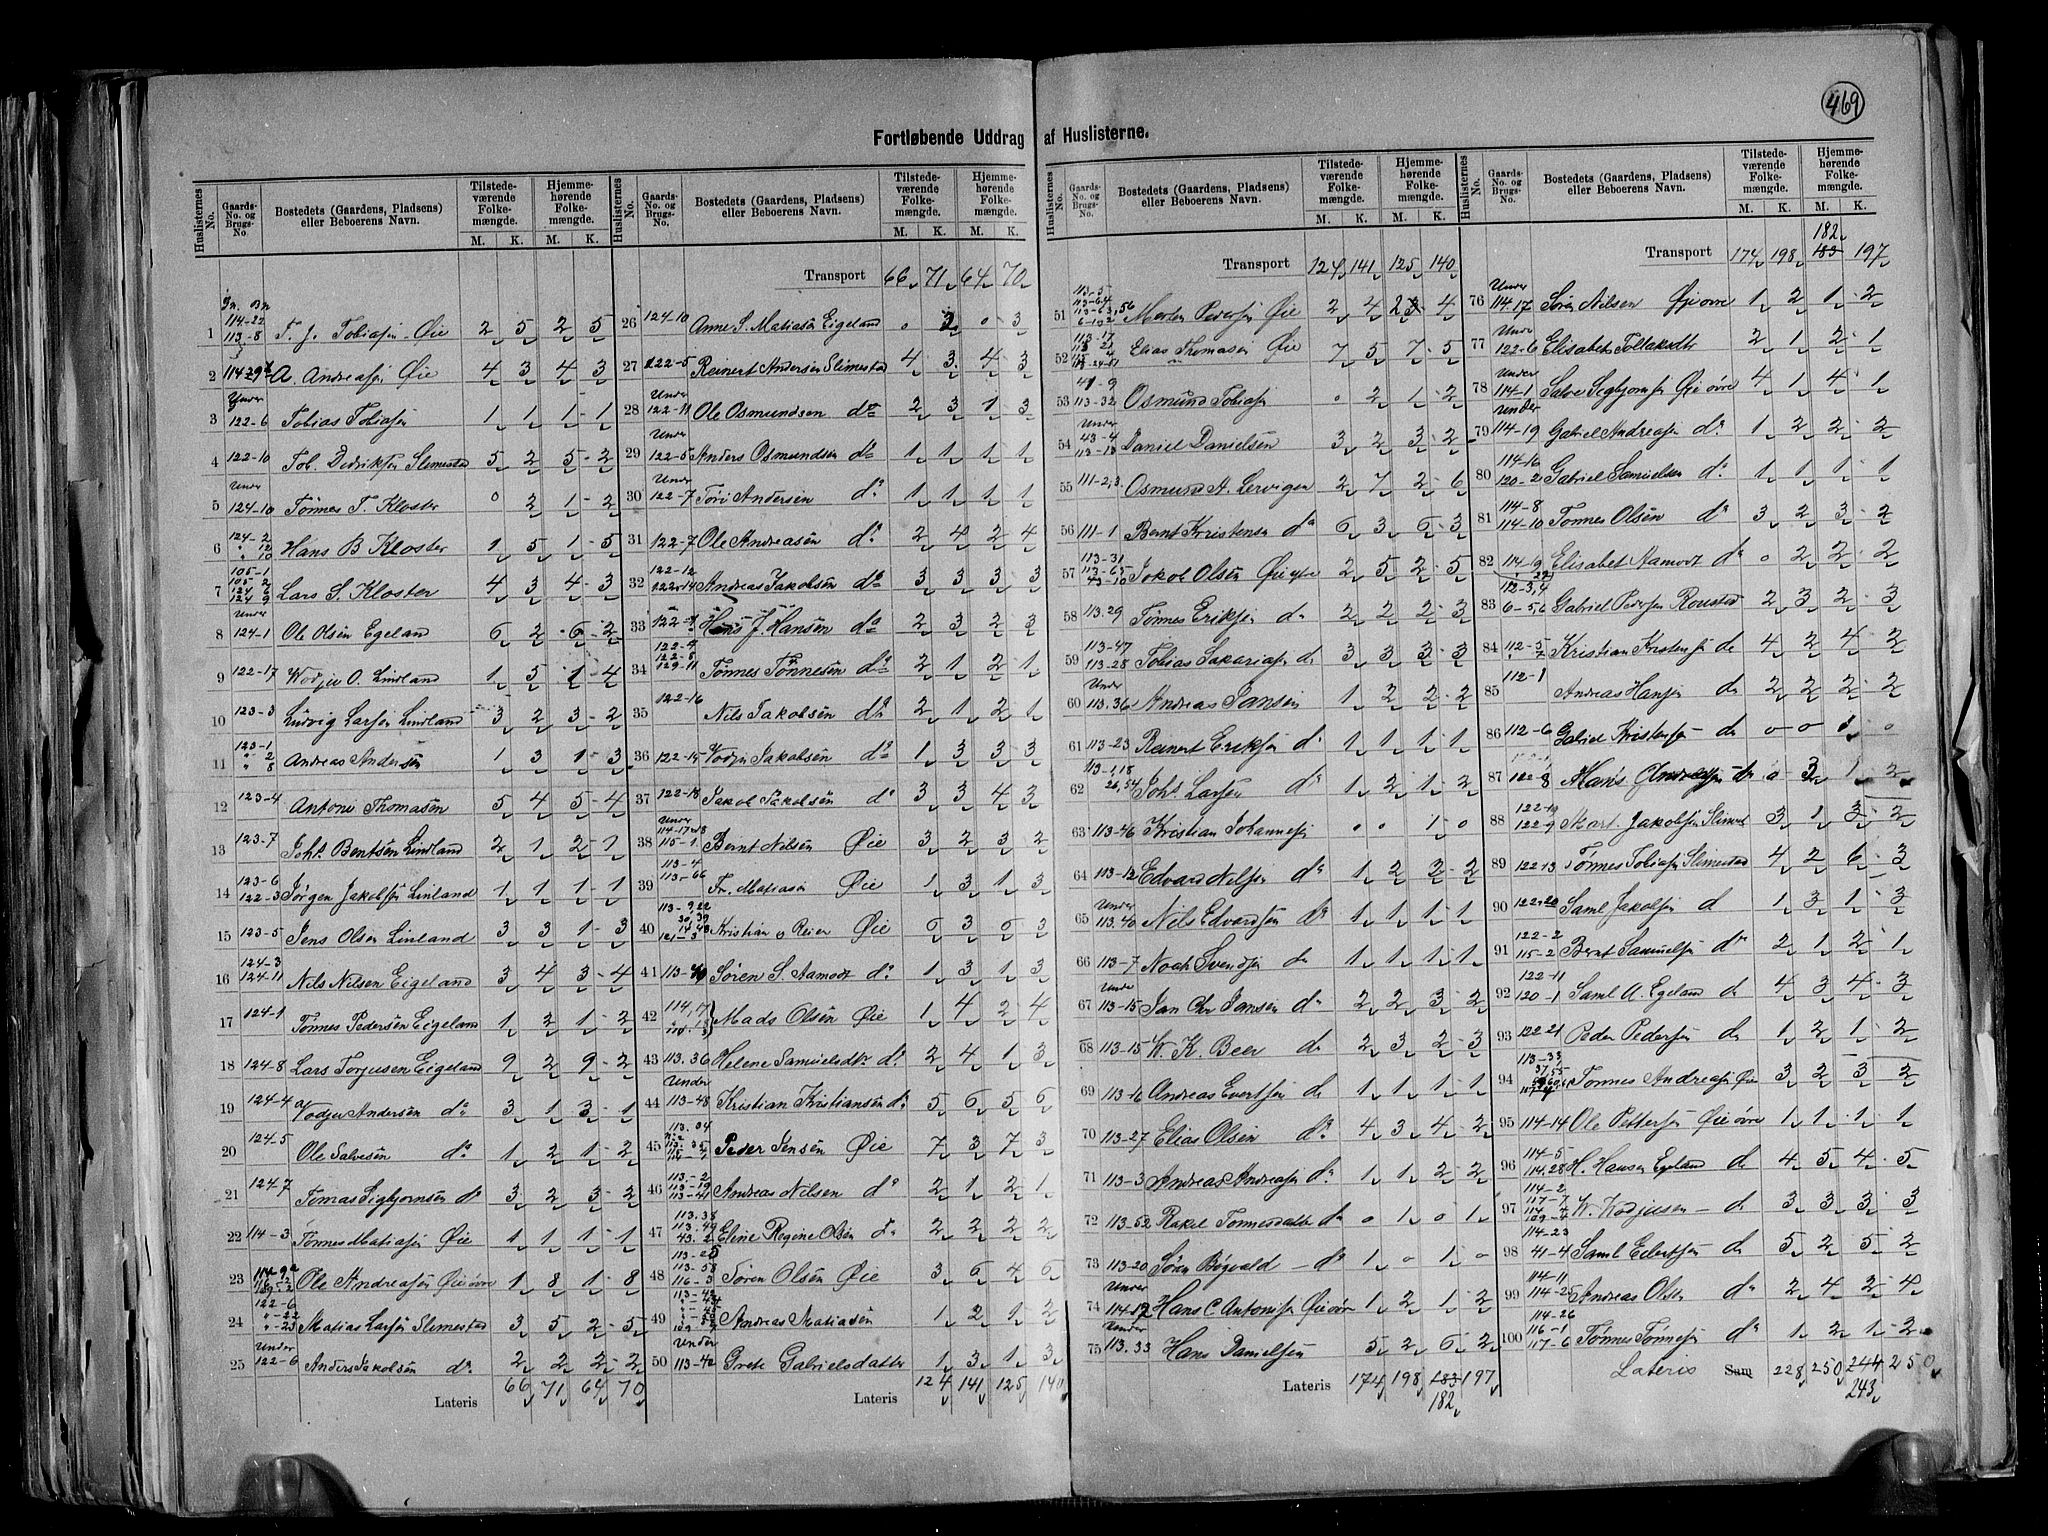 469
Fortløbende Uddrag af Huslisterne.
Huslisternes No. Gaards-No. og Brugs-No. Bostedets (Gaardens, Pladsens) eller Beboerens Navn. Tilstede-værende Folke-mængde. M. K. Hjemme-hørende Folke-mængde. M. K.
1 114-22 113-8 T. J. Tobiasen Øie 2 5 2 5
2 A. Andreasen Øie 4 3 4 3
3 Under 122-6 Tobias Tobiasen 1 1 1 1
4 122-10 Tob. Didriksen Slimestad 5 2 5 2
5 Under 124-10 Tønnes T. Kloster 0 2 1 2
6 124-2 " 12 " 10 Hans B. Kloster 1 5 1 5
7 105-1 105-2 124-6 124-9 Lars S. Kloster 4 3 4 3
8 Under 124-1 Ole Olsen Egeland 6 2 6 2
9 122-17 Wodjer O. Lindland 1 5 1 4
10 123-3 Ludvig Larsen Lindland 3 2 3 2
11 123-1 " 2 " 8 Andreas Andersen 1 3 1 3
12 123-4 Antone Thomasen 5 4 5 4
13 123-7 Joh. Bentsen Lindland 2 1 2 1
14 123-6 122-3 Jørgen Jakobsen Linland 1 1 1 1
15 123-5 Jens Olsen Linland 3 3 1 3
16 124-3 124-11 Nils Nilsen Eigeland 3 4 3 4
17 124-1 Tønnes Pedersen Eigeland 1 2 1 2
18 124-8 Lars Torjusen Eigeland 9 2 9 2
19 124-4 Vodjer Andersen do 3 1 3 1
20 124-5 Ole Salvesen do 1 2 1 2
21 124-7 Tomas Sigbjørnsen do 3 2 3 2
22 114-3 Tønnes Matiasen Øie 1 1 1 1
23 Ole Andreasen Øie øvre 1 8 1 8
24 122-6 " -22 " -23 Matias Larsen Slimestad 3 5 2 5
25 Under 122-6 Anders Jakobsen do 2 2 2 2
Lateris 66 71 64 70
Transport 66 71 64 70
26 124-10 Anne S. Matiasen Eigeland 0 3 0 3
27 122-5 Reinert Andersen Slimestad 4 3 4 3
28 Under 122-11 Ole Osmundsen do 2 3 1 3
29 Under 122-5 Anders Osmundsen do 1 1 1 1
30 122-7 Tori Andersen do 1 1 1 1
31 122-7 Ole Andreasen do 2 4 2 4
32 122-12 122-14 Andreas Jakobsen do 3 3 3 3
33 Hans J. Hansen do 2 3 2 3
34 122-4 122-8 129-11 Tønnes Tønnesen do 2 1 2 1
35 122-16 Nils Jakobsen do 2 1 2 1
36 122-15 Vodjer Jakobsen do 1 3 3 3
37 122-18 Jakob Jakobsen do 3 3 4 3
38 Under 114-17 115-1 Bernt Nilsen Øie 3 2 3 2
39 113-4 113-66 Fr. Matiasen Øie 1 3 1 3
40 113-9,22 30,39 121-3 Kristian Reier Øie 6 3 6 3
41 Søren S. Aamodt do 1 3 1 3
42 114,17 Mads Olsen Øie 1 4 2 4
43 113.36 Helene Samuelsdtr do 2 4 1 3
44 Under 113-48 Kristian Kristiansen do 5 6 5 6
45 113.34 Peder Jensen Øie 7 3 7 3
46 113-2 113-19 113-41 Andreas Nilsen do 2 1 2 1
47 113.38 113.49 43.2 Elene Regine Olsen do 2 2 2 2
48 113-25 113-58 116-3 Søren Olsen Øie 3 6 4 6
49 113-42 Andreas Matiasen 1 2 1 2
50 Under 113-42 Grete Gabrielsdatter 1 3 1 3
Lateris 124 141 125 140
Transport 124 141 125 140
51 113-5 Morten Pedersen Øie 2 4 2 4
52 113-17 Elias Thomasen Øie 7 5 7 5
53 41-9 113-32 Osmund Tobiasen 0 2 1 2
54 Under 43-4 113-13 Daniel Danielsen 3 2 3 2
55 111-2,3 Osmund A. Lervigen 2 7 2 6
56 111-1 Bernt Kristensen do 6 3 6 3
57 113-31 113-65 43-10 Jakob Olsen Øie 2 5 2 5
58 113.29 Tønnes Eriksen do 2 2 2 3
59 113-47 113-28 Tobias Sakariasen do 3 3 3 3
60 Under 113.36 Andreas Jansen 1 2 2 2
61 113-23 Reinert Eriksen do 1 1 1 1
62 113-1,18 26,54 Joh. Larsen do 1 2 1 2
63 113-46 Kristian Johannesen 0 0 1 0
64 113-12 Edvard Nilsen do 1 2 2 2
65 Under 113.40 Nils Edvardsen do 1 1 1 1
66 113-7 Noah Svendsen do 1 1 1 1
67 Under 113-15 Jan Chr Jansen do 2 2 3 2
68 113-15 W. K. Beer do 2 3 2 3
69 113-16 Andreas Evertsen do 1 1 1 1
70 113-27 Elias Olsen do 4 3 4 2
71 113-3 Andreas Andreasen do 1 1 2 2
72 113-52 Rakel Tønnesdatter do 0 1 0 1
73 113-20 Søren Bøgvald do 1 0 1 0
74 Under 114-12 Hans C. Antonisen Øie øvre 1 2 1 2
75 Under 113.33 Hans Danielsen 5 2 6 2
Lateris 174 198 183 197
182
Transport 174 198 182 183 197
76 Under 114.17 Søren Nilsen Øie øvre 1 2 1 2
77 Under 122-6 Elisabet Tollaksdtr 2 1 2 1
78 Under 114-1 Salve Sigbjørnsen Øie øvre 4 1 4 1
79 Under 114-19 Gabriel Andreasen do 1 2 2 2
80 114-16 120-2 Gabriel Samuelsen do 1 1 1 1
81 114-8 114-10 Tønnes Olsen do 3 2 3 2
82 114-9 " 22 Elisabet Aamodt do 0 2 2 2
83 112-3,4 6-5,6 Gabriel Pedersen Roustad 2 3 2 3
84 112-5 " 7 Kristian Kristensen do 4 2 4 2
85 112-1 Andreas Hansen do 2 2 2 2
86 112-6 Gabriel Kristensen do 0 0 1 0
87 122-8 Hans Andreasen do 0 3 1 2
88 122-19 122-9 Mart. Jakobsen Slimest 3 1 3 2
89 122-13 Tønnes Tobiasen Slimestad 4 2 6 3
90 122-20 Saml Jakobsen d 1 3 1 3
91 122-2 115-2 Bernt Samuelsen do 2 1 2 1
92 122-11 120-1 Saml A. Egeland do 4 3 4 3
93 122-21 Peder Pedersen do 1 2 1 2
94 113-33 37,55 Tønnes Andreasen Øie 3 2 3 2
95 114-14 Ole Pettersen Øie øvre 1 1 1 1
96 114-5 114.28 H. Hansen Egeland do 4 5 4 5
97 114-2 117-7 114-4 109-4 W. Wodjusen do 3 3 3 3
98 114-23 41-4 Saml Eilertsen do 5 2 5 2
99 114-11 114-25 Andreas Olsen do 2 4 2 4
100 114-26 116-1 117-6 Tønnes Tønnesen do 1 2 1 2
Lateris Sum 228 250 244 250
243